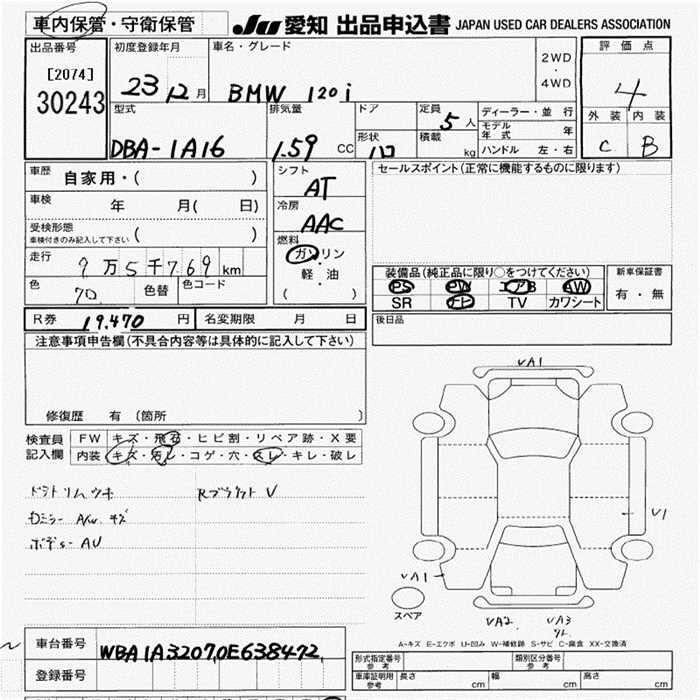 車内保管・守衛保管 Ju 愛知 出品申込書 JAPAN USED CAR DEALERS ASSOCIATION
出品番号 初度登録年月 車名・グレード 2WD ・ 4WD 評価点
[2074]
30243 23 12月 BMW 120i 4
型式 排気量 ドア 定員 5人 ディーラー・並行 外装 内装
モデル年式 年
DBA-1A16 1.59 CC 形状 積載 kg ハンドル 左・右 C B
車歴 自家用・( ) シフト AT セールスポイント(正常に機能するものに限ります)
車検 年 月( 日) 冷房 AAC
受検形態
車検付きのみ記入して下さい ( ) 燃料 ガソリン
走行 7万5千769km 軽・油
( )
装備品(純正品に限り○をつけてください) 新車保証書
色 70 色替 色コード PS PW エアB AW 有・無
SR ナビ TV カワシート
R券 19,470 円 名変期限 月 日 後日品
注意事項申告欄(不具合内容等は具体的に記入して下さい)
修復歴 有 (箇所 )
検査員 FW キズ・飛石・ヒビ割・リペア跡・X要
記入欄 内装 キズ・汚レ・コゲ・穴・スレ・キレ・破レ
Rブラケット V
A/W キズ
AU
VA1
V1
VA1
スペア
VA2 VA3
A-キズ E-エクボ U-凹み W-補修跡 S-サビ C-腐食 XX-交換済
車台番号 WBA1A32070E638472
登録番号
形式指定番号 参考 類別区分番号 参考
車庫証明用 参考 長さ cm 幅 cm 高さ cm